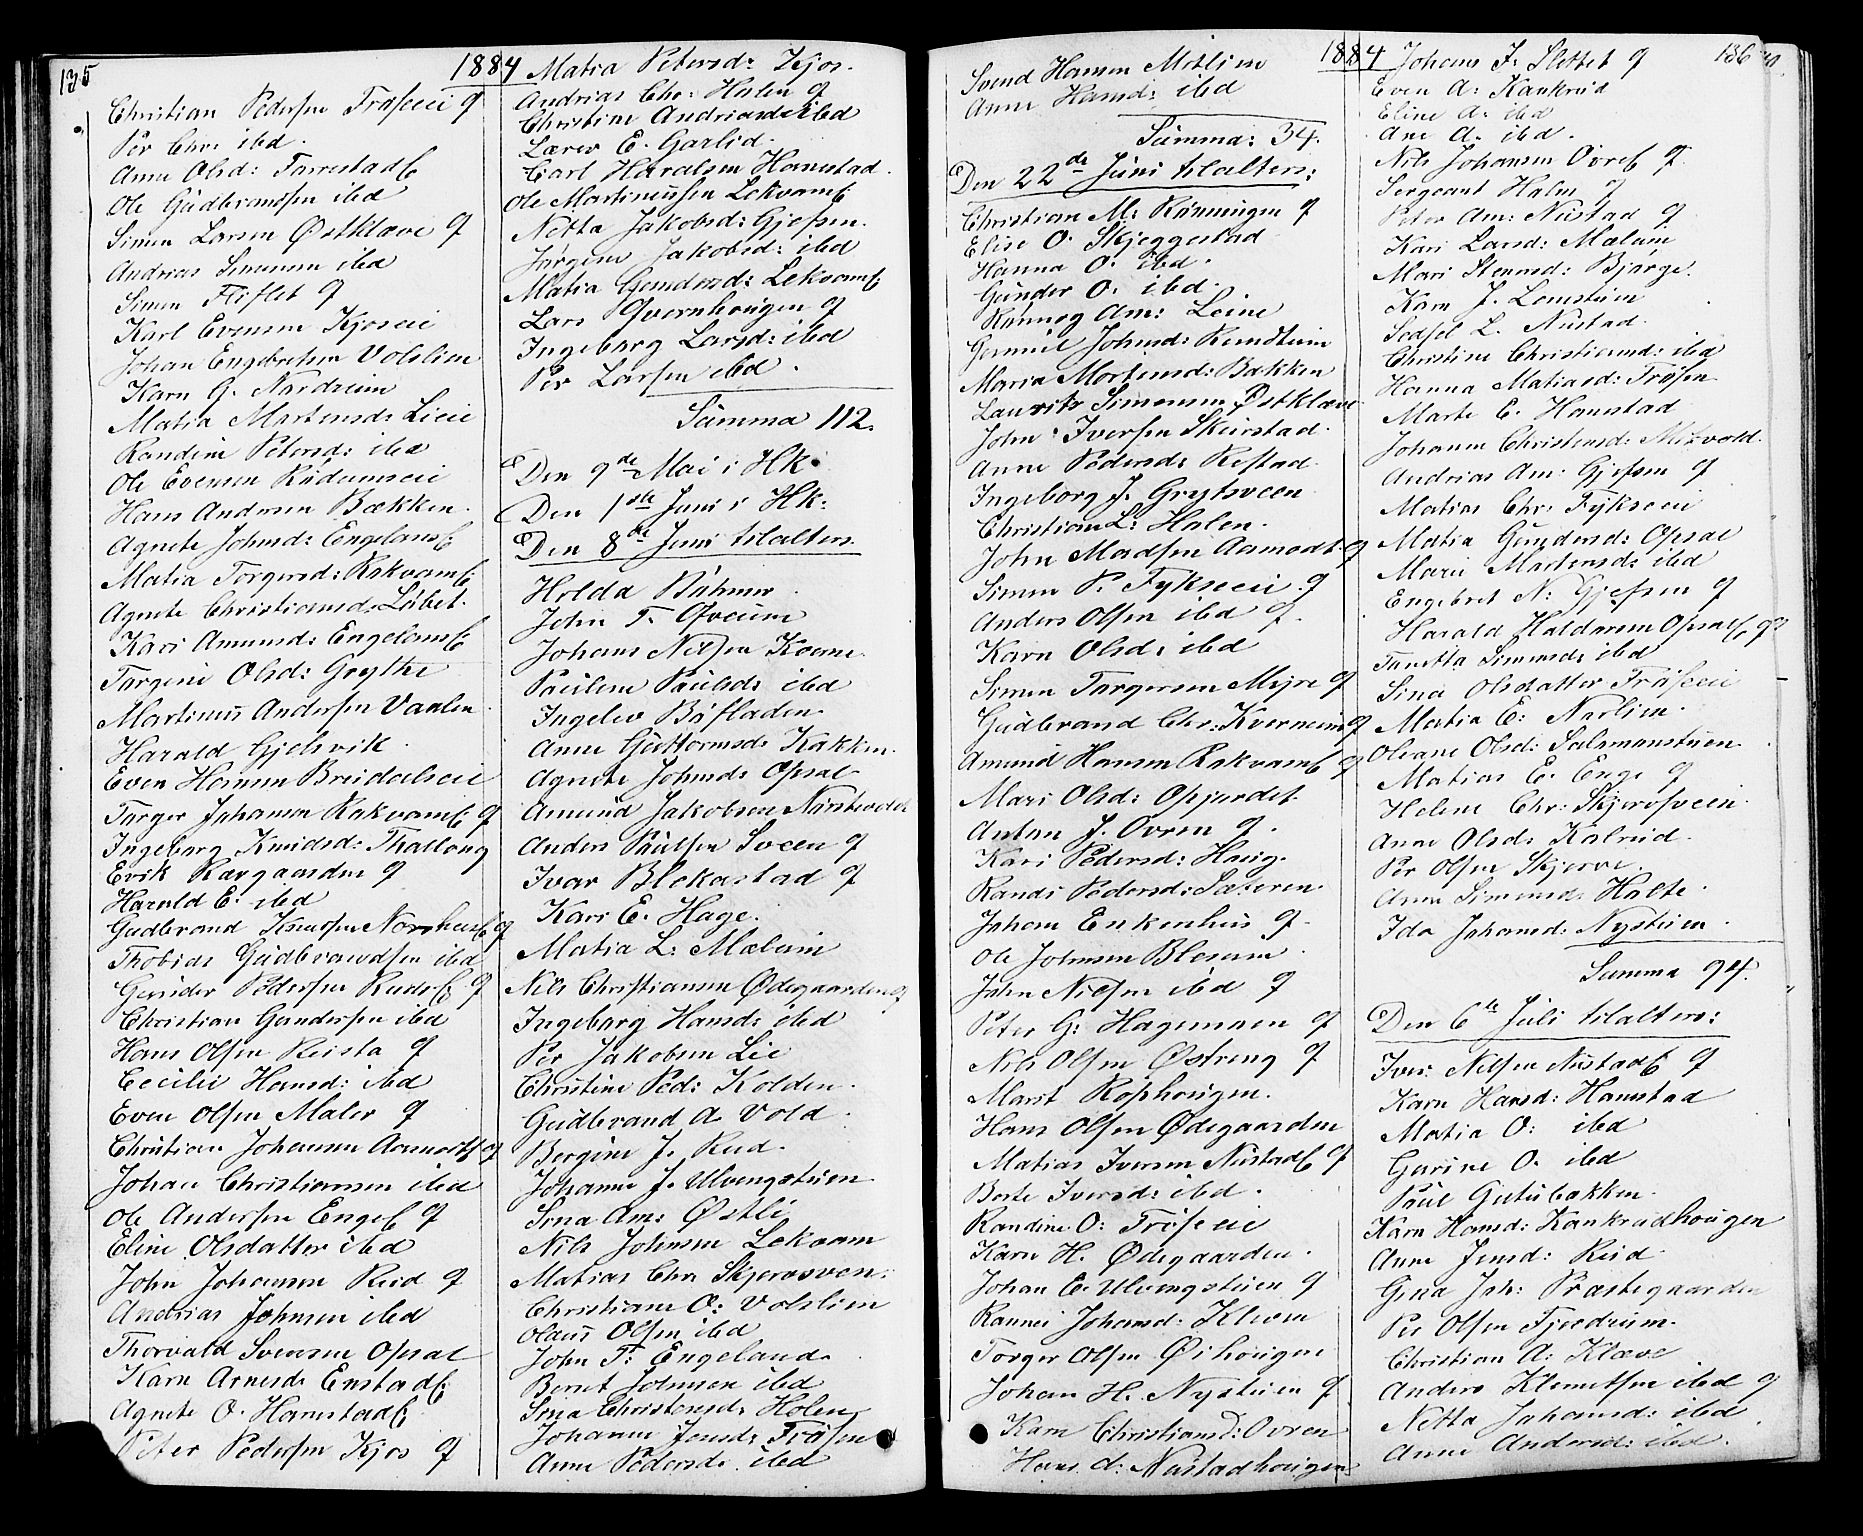 135
1884
Christian Pedersen Trøseie q
Per Chr: ibd.
Anne Olsd: Farrestad
Ole Gudbrandsen ibd
Simen Larsen Østklæve q
Andreas Simensen ibd
Simen Fliflet q
Karl Evensen Kjoseie
Johan Engebretsen Volslien
Karn G. Nordrum
Matia Mortensd: Lieie
Randine Petersd: ibd
Ole Evensen
Hans Andersen Bækken.
Agnete Johnsd: Engelands
Matia Torgersd: Rakvam
Agnete Christiansd:
Kari Amunsd: Engelands
Torgine Olsd: Grythe
Martinus Andersen Vaalen
Harald Gjelsvik.
Even Hansen Breidalseie
Torger Johansen Rakvam q
Ingeborg Knudsd: Thallong
Erik Rægaarden q
Harald E. ibd
Gudbrand Knudsen q
Thobias Gudbrandsen ibd
Gunder Pedersen Ruds q
Christian Gundersen ibd
Hans Olsen Reista q
Cecilie Hansd: ibd
Even Olsen Maler q
Christian Johansen Aamodt q
Johan Christiansen ibd
Ole Andersen Enge q
Eline Olsdatter ibd
John Johansen Rud q
Andreas Johnsen ibd
Thorvald Svensen Opsal
Karn Arnesd: Enstad
Agnete O. Hamstad
Peter Pedersen Kjos q
Matia Petersd: Kjos.
Andreas Chr: Holen q
Christine Andreasd: ibd
Lars E. Garlid.
Carl Haralsen Hamstad.
Ole Martinussen Lekvam
Netta Jakobsd: Gjefsen.
Jørgine Jakobsd: ibd
Matia Gundersd: Lekvam
Lars Qvernhougen q
Ingeborg Larsd: ibd
Per Larsen ibd.
Summa 112.
Den 9de Mai i Hk.
Den 1ste Juni i Hk:
Den 8de Juni til alters
Holda Bøhmer
John T. Ofveium
Johans Nilsen Koerne
Pauline Paulsd: ibd
Ingelev Bøfladen
Anne Guttormsd: Kokken.
Agnete Johnsd: Opsal
Amund Jakobsen
Anders Paulsen Sveen q
Ivar Blekastad q
Kari E. Hage.
Matia L: Mælum
Nils Christiansen Ødegaarden q
Ingeborg Hansd: ibd
Per Jakobsen Lie
Christine Ped: Kolden.
Gudbrand A. Vold.
Bergine J. Rud.
Johanne J. Ulvengstuen
Sina Am: Østli
Nils Johnsen Lekvam
Matias Chr Skjerosven.
Christiane O: Volslien
Olaus Olsen ibd
John T: Engeland.
Bernt Johnsen ibd
Sina Christensd: Holen
Johanne Jensd: Trøsen
Anne Pedersd: ibd
1884
136
Svend Hansen Mitlien
Anne Hansd: ibd
Summa: 34.
Den 22de Juni til alters:
Christian M: Rønningen q
Elise O. Skjeggestad
Hanna O. ibd.
Gunder O. ibd.
Rønnog Am: Leine
Gunnil Johnsd:
Maria Mortensd: Bakken
Laurits Simensen Østklæve
John Iversen Skurstad.
Anne Pedersd: Rostad.
Ingeborg J. Grytsveen
Christian L: Holen.
John Madsen Aamodt q
Simen P. Fykseeie. q
Anders Olsen ibd q.
Karn Olsd: ibd
Simen Torgersen Myre q
Gudbrand Chr: q
Amund Hansen Rakvam q
Mari Olsd: Opjordet.
Anton J. Ovren q.
Kari Pedersd: Haug.
Randi Pedersd: Sæteren.
Johan Enkenhus q.
Ole Johnsen Blesum.
John Nilsen ibd q
Peter G: Hagemoen q
Nils Olsen Østreng q
Marit Kophougen.
Hans Olsen Ødegaarden
Matias Iversen Nustad q
Berte Iversd: ibd.
Randine O: Trøseie
Karn H. Ødegaarden.
Johan E. Ulvengstuen q
Rannei Johansd: Kleven
Torger Olsen Øihougen
Johan H. Nystuen q
Karn Christiansd: Ovren
Hans A: Nustadhougen
Johans J. Slettet q
Even A: Kankrud
Eline A: ibd
Ane A. ibd.
Nils Johansen Øvre q.
Sergeant Holm q
Peter Am: Nustad q
Kari Larsd: Mælum
Mari Stensd: Bjørge.
Karn J. Lomstuen
Sedsel L. Nustad.
Christine Christiansd: ibd
Hanna Matiasd: Trøsen
Marte E. Hamstad
Johanne Christensd: Moxvold.
Andreas Am: Gjefsen q
Matias Chr: Fykseeie
Matia Gundersd: Opsal
Maren Mortensd: ibd
Engebret N: Gjefsen q
Harald Haldorsen Opsal q
Tanetta Simensd: ibd
Sina Olsdatter Trøseie
Matia E: Norlien.
Oleane Olsd: Salomonstuen.
Matias E. Enge q
Helene Chr: Skjerosveen.
Anne Olsd: Kalrud.
Per Olsen Skjerve.
Anne Simensd: Holte.
Ida Johansd: Nystuen.
Summa 94.
Den 6te Juli til alters:
Iver Nilsen Nustad q
Karn Hansd: Hamstad
Matia O: ibd
Gurine O. ibd
Paul Gutubakken.
Karn Hansd: Kankrudhougen
Anne Jensd: Rud.
Gina Joh: Præstegaarden
Per Olsen Fjerdrum.
Christian A: Klæve
Anders Klemetsen ibd q
Netta Johansd: ibd.
Anne Andersd: ibd.